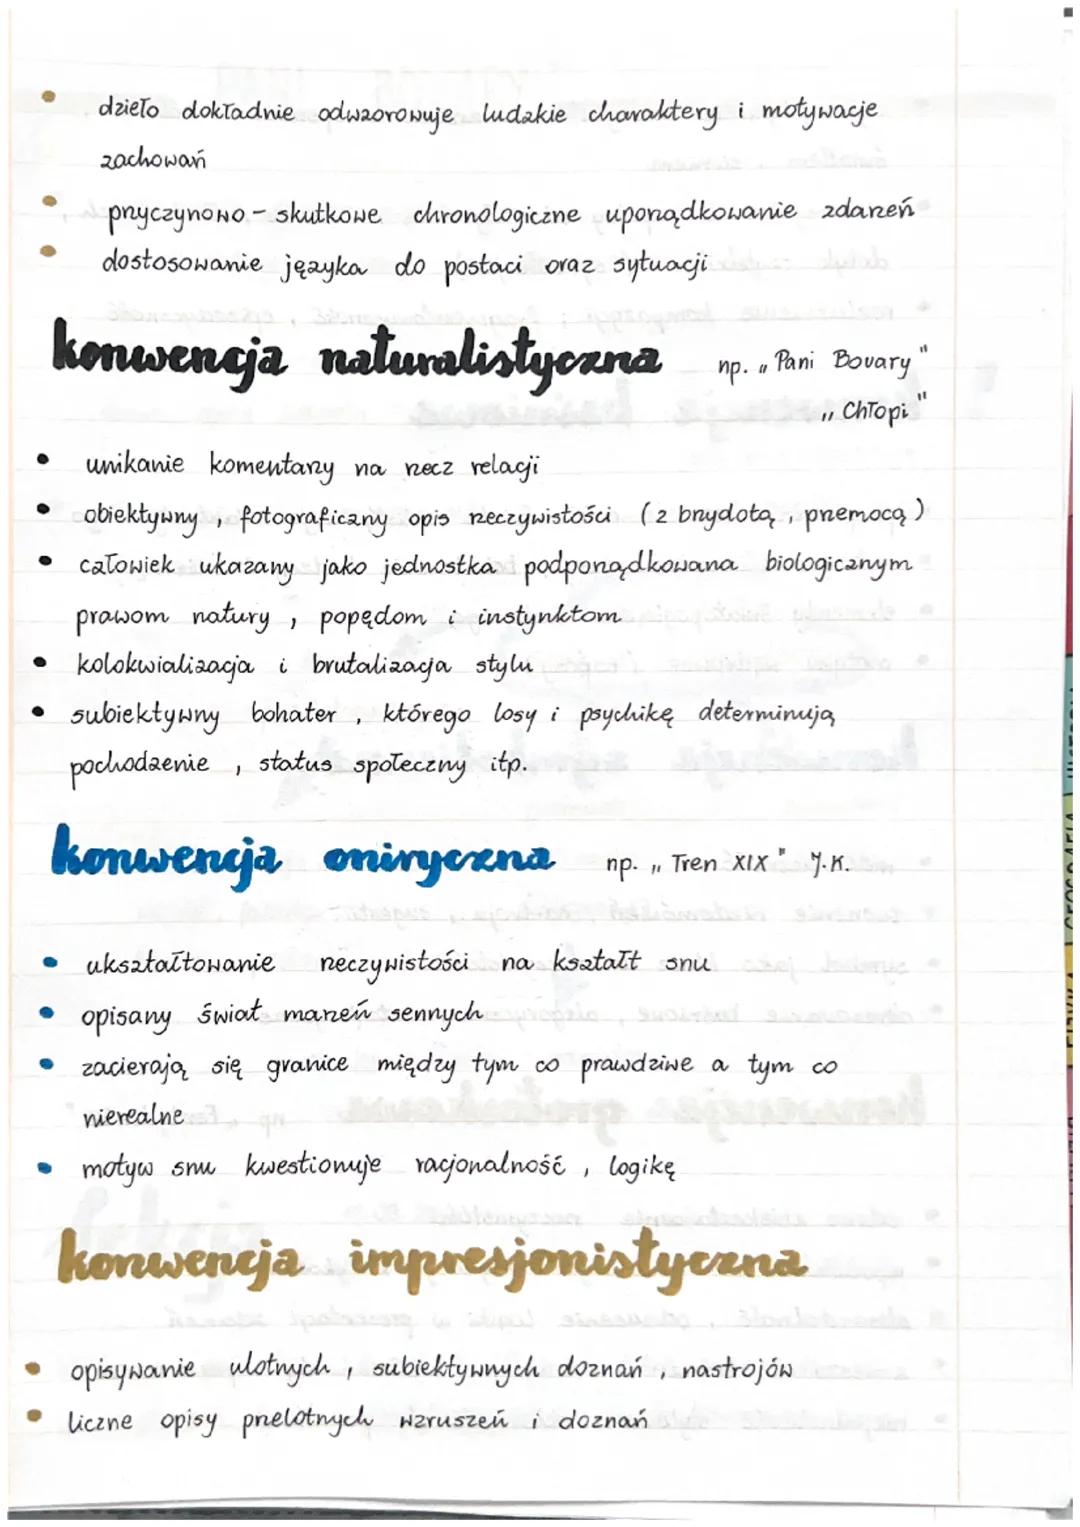 dzieło dokładnie odwzorowuje ludzkie charaktery i motywacje
zachowań
przyczynowo - skutkowe chronologiczne uporządkowanie zdarzeń
dostosowanie języka do postaci oraz sytuacji
konwencja naturalistyczna np. „Pani Bovary"
„Chłopi"
unikanie komentarzy na rzecz relacji
obiektywny, fotograficzny opis rzeczywistości (z brzydotą, przemocą)
człowiek ukazany jako jednostka podporządkowana biologicznym
prawom natury, popędom i instynktom
kolokwializacja i brutalizacja stylu
subiektywny bohater, którego losy i psychikę determinują
pochodzenie, status społeczny itp.
konwencja oniryczna np. „Tren XIX" J.K.
ukształtowanie rzeczywistości na kształt snu
opisany świat marzeń sennych
zacierają się granice między tym co prawdziwe a tym co
nierealne
motyw snu kwestionuje racjonalność, logikę
konwencja impresjonistyczna
opisywanie ulotnych, subiektywnych doznań, nastrojów
liczne opisy przelotnych wzruszeń i doznań